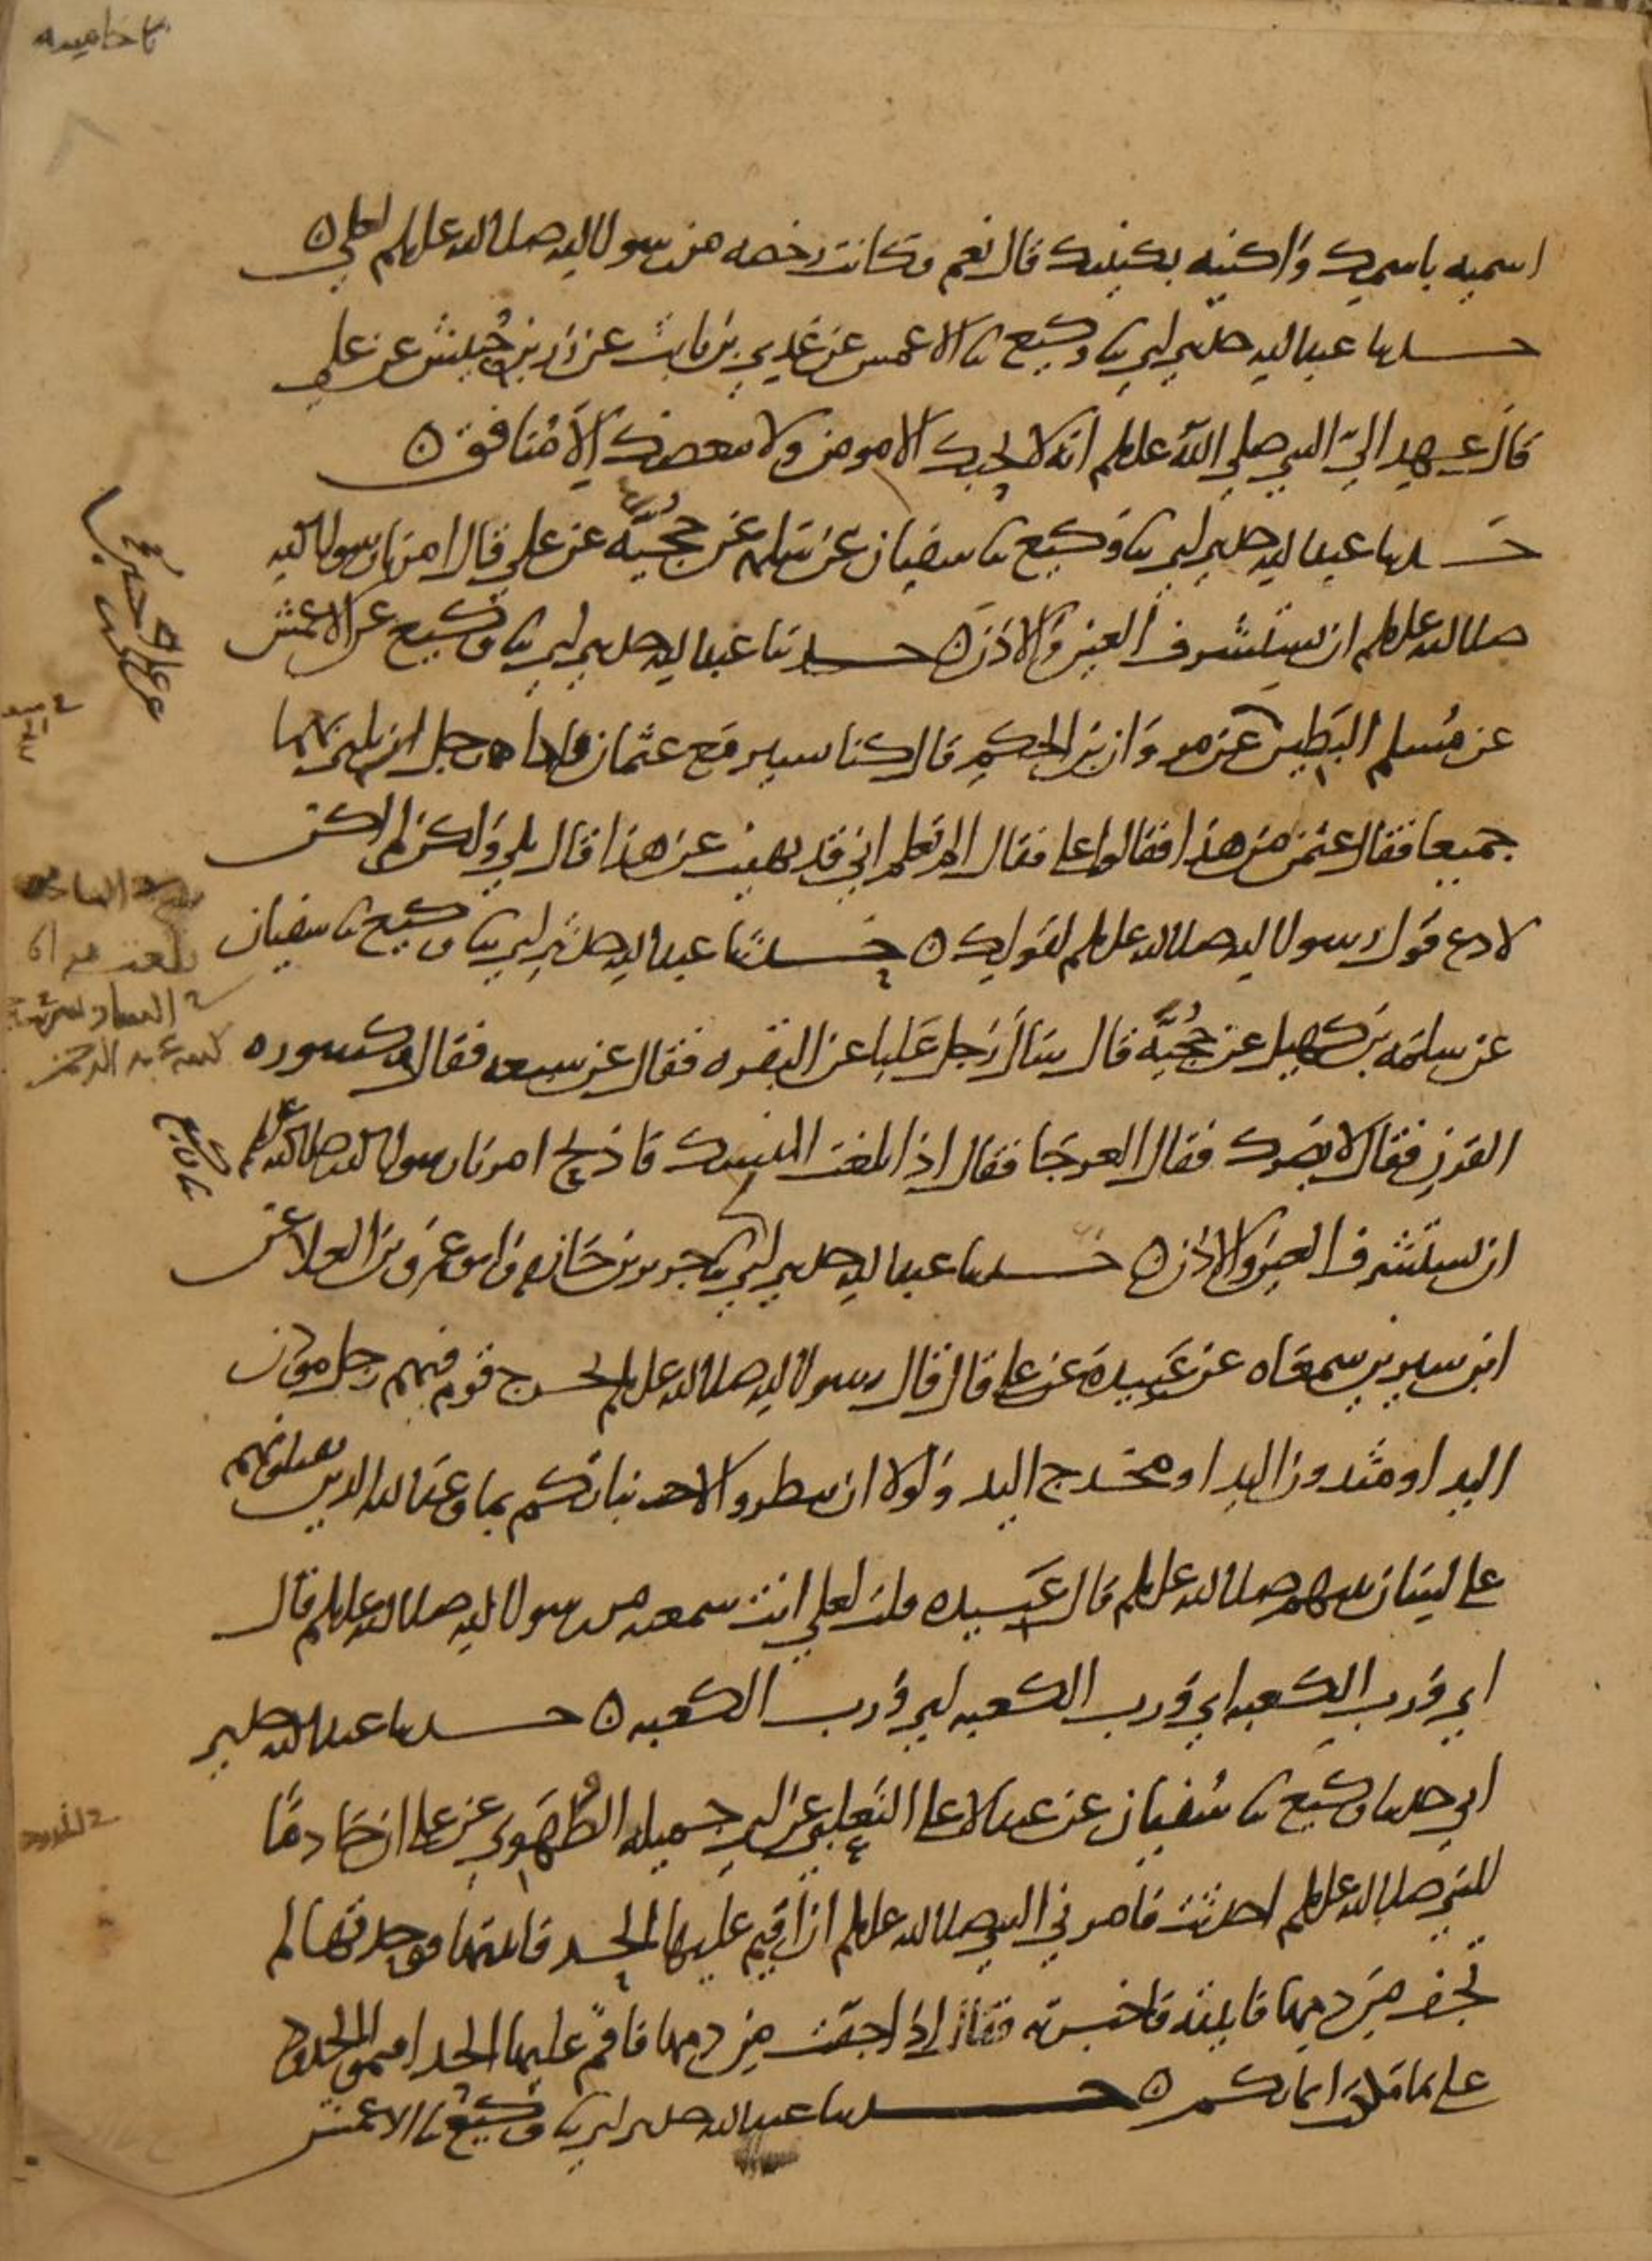 اسميه باسمك واكنيه بكنيتك قال نعم فكانت رخصه من رسول الله صلى الله عليه وسلم لعلي ه
حدثنا عبد الله حدثني ابي ثنا وكيع ثنا الاعمش عن عدي بن ثابت عن زر بن حبيش عن علي
قال عهد اليّ النبي صلى الله عليه وسلم انه لا يحبك الا مومن ولا يبغضك الا منافق ه
حدثنا عبد الله حدثني ابي ثنا وكيع ثنا سفيان عن سلمه عن حجيّه عن علي قال امرنا رسول الله
صلى الله عليه وسلم ان نستشرف العين والاذن ه حدثنا عبد الله حدثني ابي ثنا وكيع عن الاعمش
عن مُسلم البطين عن مروان بن الحكم قال كنا نسير مع عثمان فاذا رجل يلبي بهما
جميعا فقال عثمن من هذا فقالوا علي فقال الم تعلم اني قد نهيت عن هذا قال بلى ولكن لم اكن
لادع قول رسول الله صلى الله عليه وسلم لقولك ه حدثنا عبد الله حدثني ابي ثنا وكيع ثنا سفيان
عن سلمه بن كهيل عن حُجيّه قال سال رجل عليا عن البقره فقال عن سبعه فقال مكسوره
القرن فقال لا يضرك فقال العرجا فقال اذا بلغت المنسك فاذبح امرنا رسول الله صلى الله عليه وسلم
ان نستشرف العين والاذن ه حدثنا عبد الله حدثني ابي ثنا وكيع ثنا جرير بن حازم وابو عمرو بن العلا عن
ابن سيرين سمعاه عن عَبيدة عن علي قال قال رسول الله صلى الله عليه وسلم يخرج قوم فيهم رجل مودن
اليد او مثدون اليد او مخدج اليد ولولا ان تبطروا لانباتكم بما وعد الله الذين يقتلونهم
على لسان نبيهم صلى الله عليه وسلم قال عَبيده قلت لعلي انت سمعته من رسول الله صلى الله عليه وسلم قال
اي ورب الكعبه اي ورب الكعبه اي ورب الكعبه ه حدثنا عبد الله حدثني
ابي حدثنا وكيع ثنا سُفيان عن عبد الاعلى الثعلبي عن ابي جميله الطُهَوي عن علي ان خادمًا
للنبي صلى الله عليه وسلم احدثت فامرني النبي صلى الله عليه وسلم ان اقيم عليها الحد فاتيتها فوجدتها لم
تجف من دمها فاتيته فاخبرته فقال اذا جفت من دمها فاقم عليها الحد اقيموا الحدود
على ما ملكت ايمانكم ه حدثنا عبد الله حدثني ابي ثنا وكيع ثنا الاعمش
ثنا وكيع